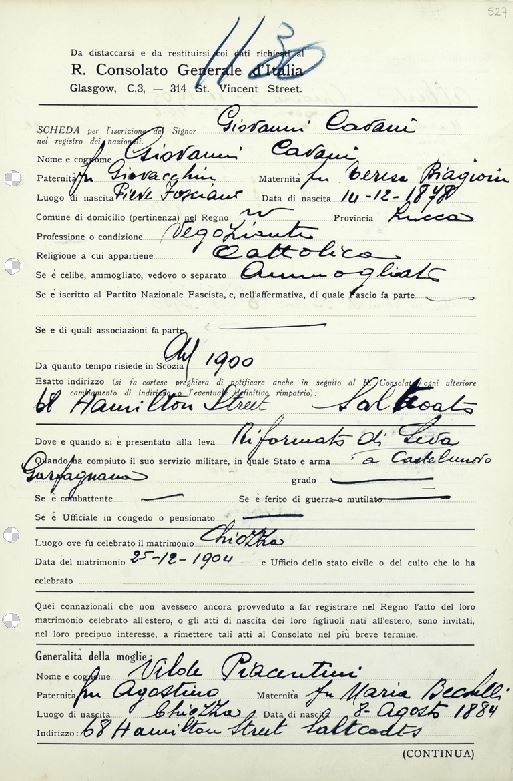 527
1130
Da distaccarsi e da restituirsi coi dati richiesti al
R. Consolato Generale d'Italia
Glasgow, C.3, — 314 St. Vincent Street.
SCHEDA per l'iscrizione del Signor Giovanni Cavani
nel registro dei nazionali
Nome e cognome Giovanni Cavani
Paternità fu Giovacchin Maternità fu Teresa Biagioni
Luogo di nascita Pieve Fosciana Data di nascita 14-12-1878
Comune di domicilio (pertinenza) nel Regno Provincia Lucca
Professione o condizione Negoziante
Religione a cui appartiene Cattolica
Se è celibe, ammogliato, vedovo o separato Ammogliato
Se è iscritto al Partito Nazionale Fascista, e, nell'affermativa, di quale Fascio fa parte
Se e di quali associazioni fa parte
Da quanto tempo risiede in Scozia 1900
Esatto indirizzo (si fa cortese preghiera di notificare anche in seguito al R. Consolato ogni ulteriore
cambiamento di indirizzo o l'eventuale definitivo rimpatrio):
68 Hamilton Street Saltcoats
Dove e quando si è presentato alla leva Riformato di Leva
Quando ha compiuto il suo servizio militare, in quale Stato e arma a Castelnuovo
Garfagnana grado
Se è combattente Se è ferito di guerra o mutilato
Se è Ufficiale in congedo o pensionato
Luogo ove fu celebrato il matrimonio Chiozza
Data del matrimonio 25-12-1904 e Ufficio dello stato civile o del culto che lo ha
celebrato
Quei connazionali che non avessero ancora provveduto a far registrare nel Regno l'atto del loro
matrimonio celebrato all'estero, o gli atti di nascita dei loro figliuoli nati all'estero, sono invitati,
nel loro precipuo interesse, a rimettere tali atti al Consolato nel più breve termine.
Generalità della moglie:
Nome e cognome Vilde Piacentini
Paternità fu Agostino Maternità fu Maria Bechelli
Luogo di nascita Chiozza Data di nascita 8-Agosto 1884
Indirizzo: 68 Hamilton Street Saltcoats
(CONTINUA)